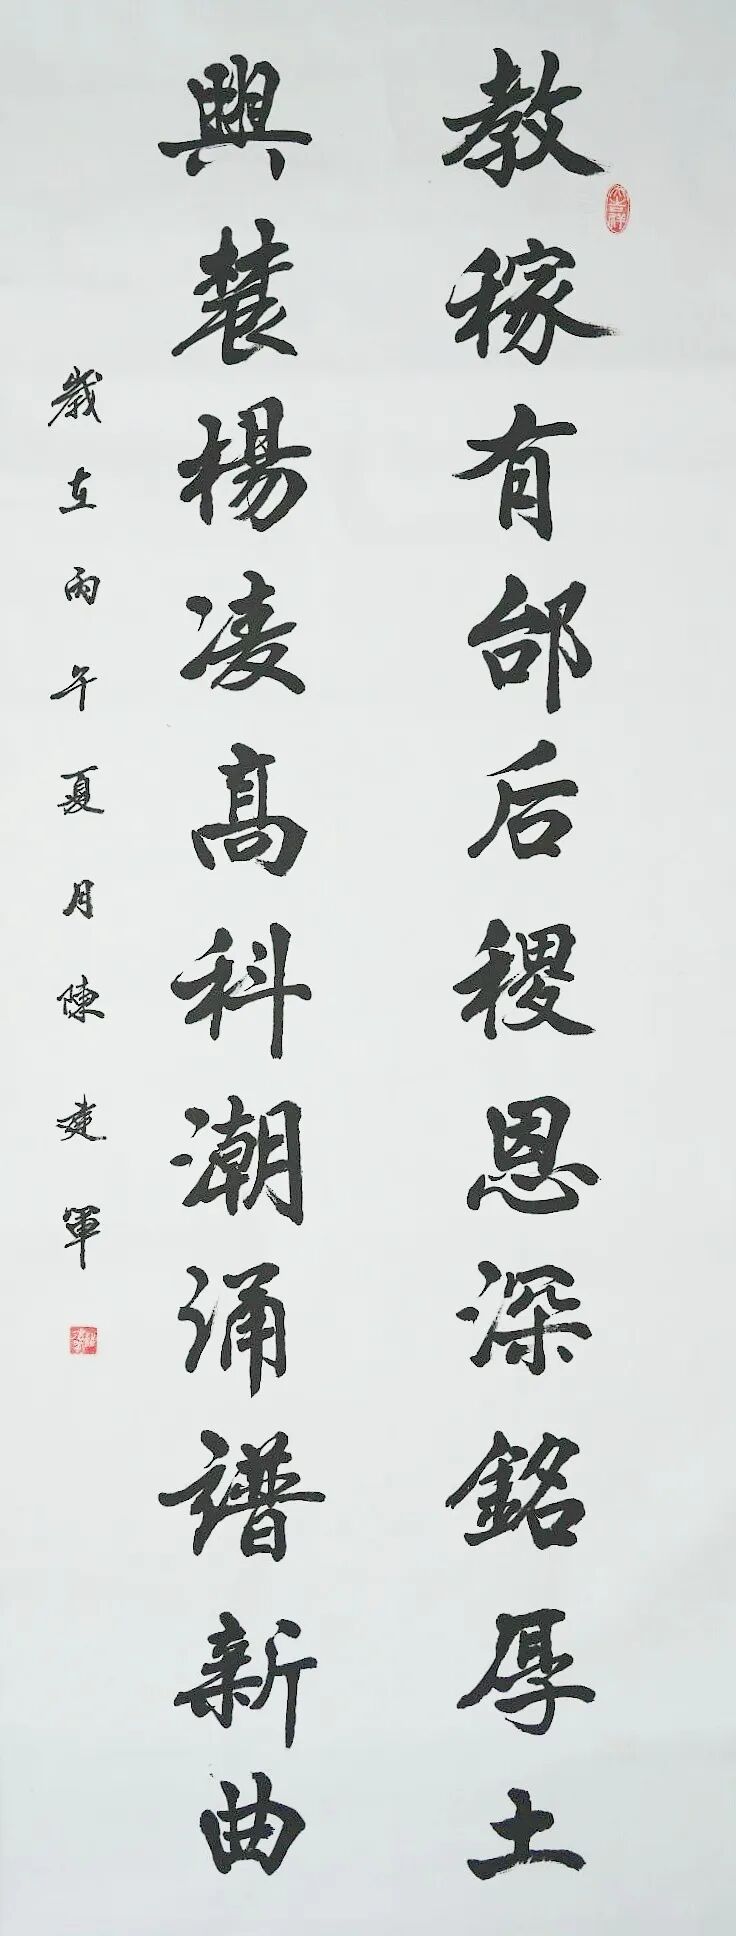 教稼有邰后稷恩深銘厚土
興農楊凌高科潮涌譜新曲
歲在丙午夏月陳建軍
大吉祥